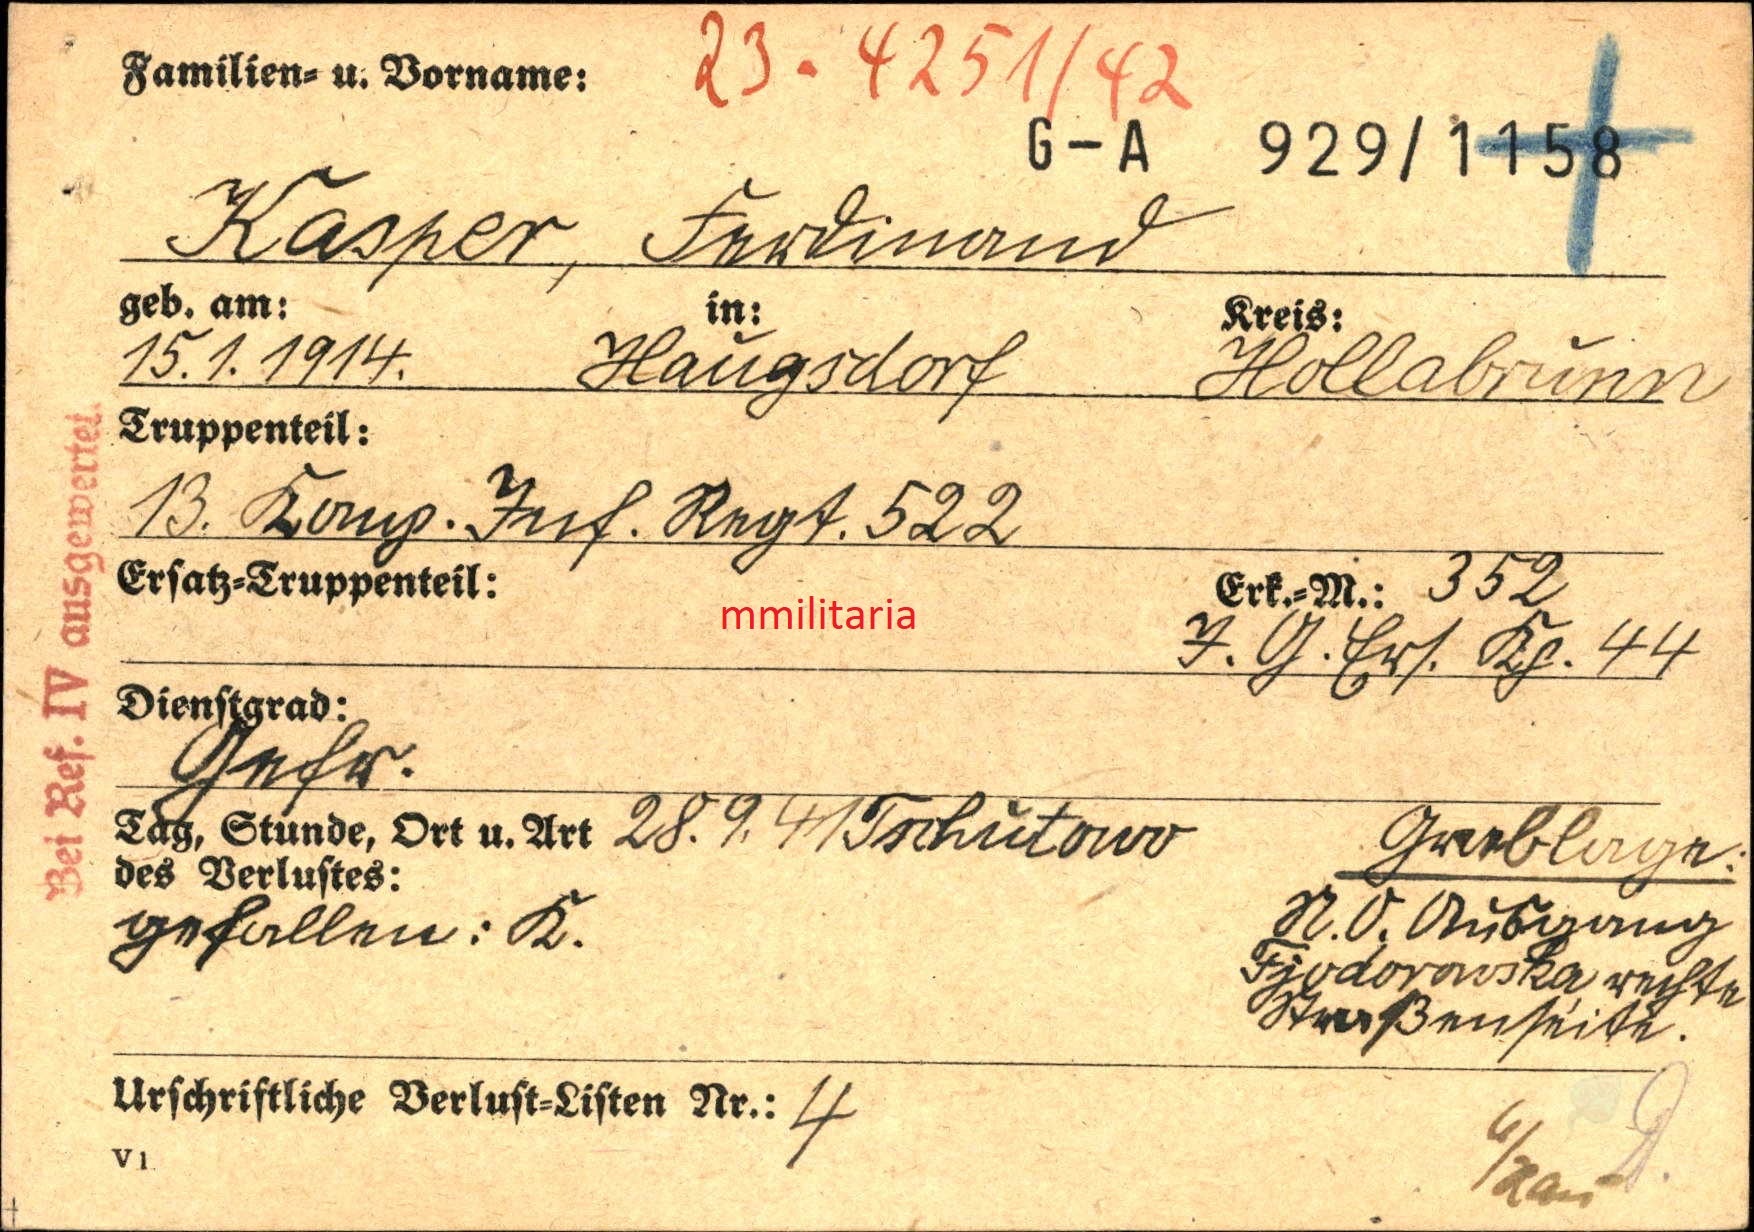 23 - 4251/42
Familien- u. Vorname:
G-A 929/1158
Kasper, Ferdinand
geb. am: in: Kreis:
15.1.1914. Haugsdorf Hollabrunn
Truppenteil:
13. Komp. Inf. Regt. 522
Ersatz-Truppenteil: Erk.-M.: 352
mmilitaria
I. G. Ers. Kp. 44
Dienstgrad:
Gefr.
Tag, Stunde, Ort u. Art 28.9.41 Tschutowo
des Verlustes:
gefallen: K.
Grablage:
N.O. Ausgang
Fjodorowska rechte
Straßenseite.
Urschriftliche Verlust-Listen Nr.: 4
V 1
Bei Ref. IV ausgewertet.